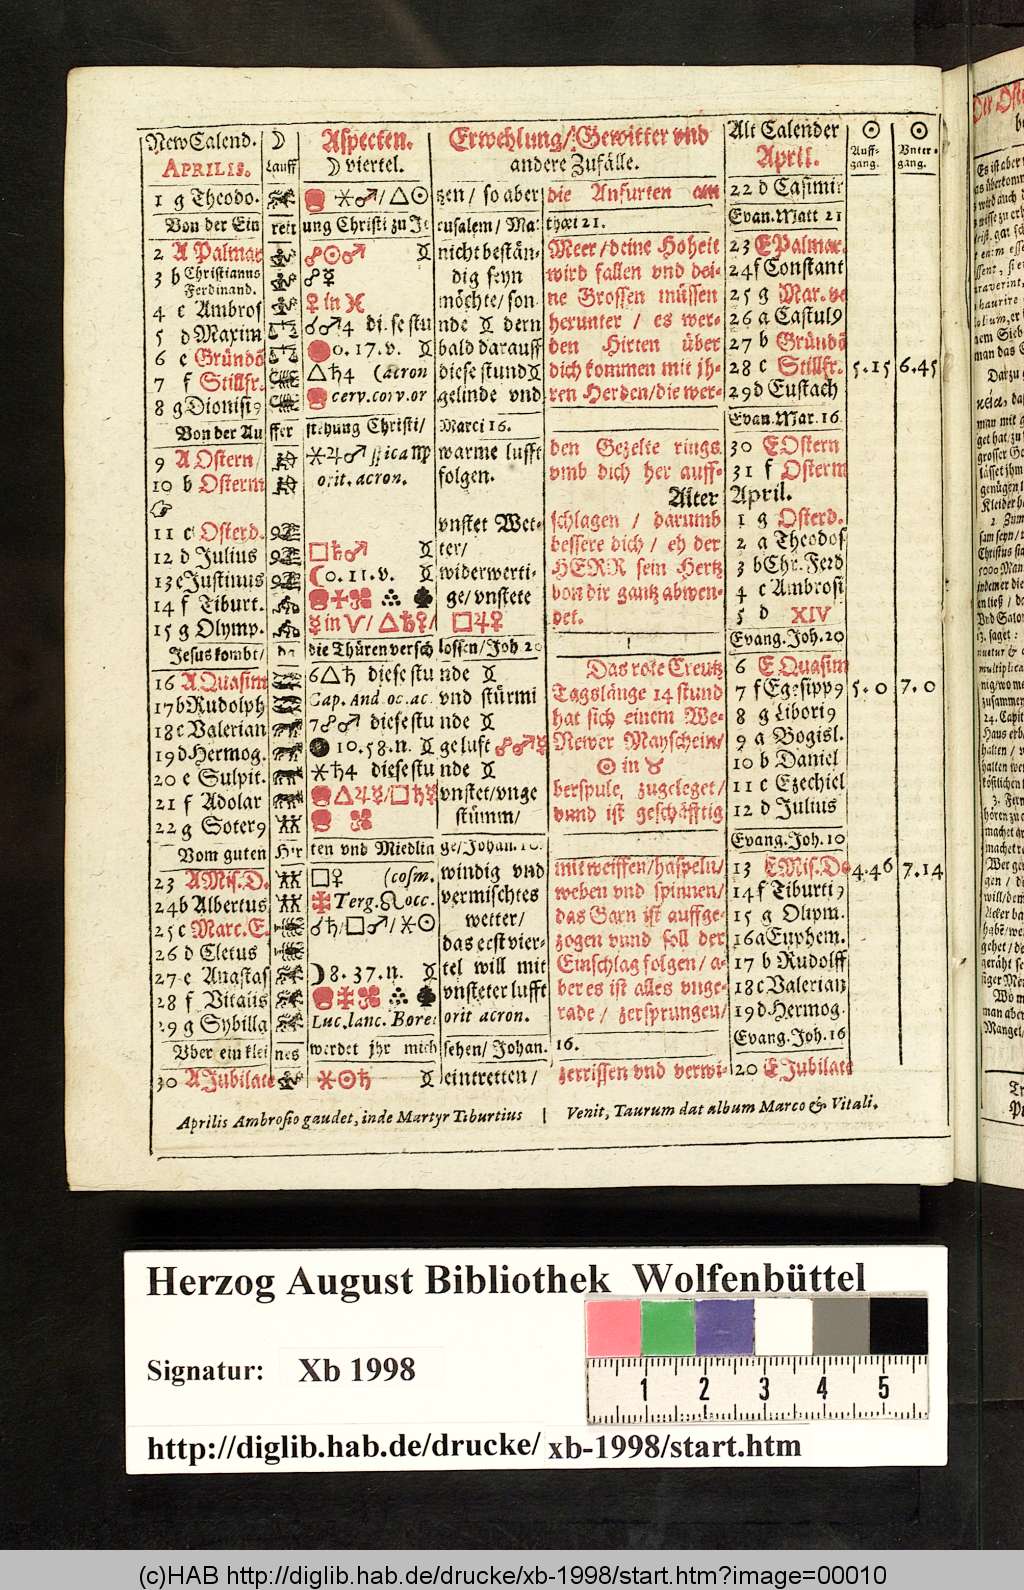 New Calend. ☽ Aspecten. Erwehlung/ Gewitter vnd Alt Calender ☉ ☉
APRILIS. Lauff ☽ viertel. andere Zufälle. April. Auffgang. Vntergang.
1 g Theodo. ⚹♂/△☉ zen/ so aber die Anfurten am 22 d Casimir
Von der Einreitung Christi zu Jerusalem/ Mathæi 21. Evan. Matt 21
2 A Palmar ☍☉♂ nicht bestän- Meer/deine Hoheit 23 E Palmar.
3 b Christianns Ferdinand. ☍☿ dig seyn wird fallen vnd dei- 24 f Constant
4 c Ambros ♀ in ♓ möchte/ son ne Grossen müssen 25 g Mar. ve
5 d Maxim ☌♂4 diese stunde dern herunter / es wer- 26 a Castul9
6 e Gründõ 0.17.v. bald darauff den Hirten über 27 b Gründõ
7 f Stillfr. △♄4 (acron diese stund dich kommen mit jh- 28 c Stillfr. 5.15 6.45
8 g Dionisi9 cerv.corv.or gelinde vnd ren Herden/die wer- 29 d Eustach
Von der Aufferstehung Christi/ Marci 16. Evan. Mar. 16
9 A Ostern/ ⚹♃♂ spica ♍ warme lufft den Gezelte rings 30 E Ostern
10 b Osterm orit. acron. folgen. vmb dich her auff- 31 f Osterm
Alter April.
11 c Osterd. vnstet Wet- schlagen / darumb 1 g Osterd.
12 d Julius □♄♂ ter/ bessere dich / eh der 2 a Theodos
13 e Justinus ☾0.11.v. widerwerti- HERR sein Hertz 3 b Chr. Ferd
14 f Tiburt. ge/ vnstete von dir gantz abwen- 4 c Ambrosi
15 g Olymp. ☿ in ♈/ △♄♀/ □♃♀ det. 5 d XIV
Jesus kombt/ da die Thüren verschlossen/ Joh 20 Evang. Joh. 20
16 A Quasim 6△♄ diese stunde Das rote Creutz 6 E Quasim
17 b Rudolph Cap. And oc. ac. vnd stürmi Tagslänge 14 stund 7 f Egesipp9 5.0 7.0
18 c Valerian 7☍♂ diese stunde hat sich einem We- 8 g Libori9
19 d Hermog. 10.58.n. ge lufft ☍♂☿ Newer Mayschein/ 9 a Bogisl.
20 e Sulpit. ⚹♄4 diese stunde ☉ in ♉ 10 b Daniel
21 f Adolar △♃☿/□♄☿ vnstet/vnge berspule, zugeleget/ 11 c Ezechiel
22 g Soter9 stümm/ vnnd ist geschäfftig 12 d Julius
Vom guten Hirten vnd Miedlinge/ Johan. 10. Evang. Joh. 10
23 A Mis. D. □♀ (cosm. windig vnd mit weiffen/haspeln/ 13 E Mis. Do 4.46 7.14
24 b Albertus Terg. ☊ occ. vermischtes weben vnd spinnen/ 14 f Tiburti9
25 c Marc. E. ☌♄/□♂/⚹☉ wetter/ das Garn ist auffge- 15 g Olipm.
26 d Cletus das erst vier- zogen vnnd soll der 16 a Euphem.
27 e Anastas ☽8.37.n. tel will mit Einschlag folgen/ a- 17 b Rudolff
28 f Vitalis vnsteter lufft ber es ist alles vnge- 18 c Valerian
29 g Sybilla Luc. lanc. Bore: orit acron. rade / zersprungen/ 19 d Hermog.
Vber ein kleines werdet jhr mich sehen/ Johan. 16. Evang. Joh. 16
30 A Jubilate ⚹☉♄ eintretten/ zerrissen vnd verwi- 20 E Jubilate
Aprilis Ambrosio gaudet, inde Martyr Tiburtius | Venit, Taurum dat album Marco & Vitali.
Herzog August Bibliothek Wolfenbüttel
Signatur: Xb 1998
1 2 3 4 5
http://diglib.hab.de/drucke/ xb-1998/start.htm
(c)HAB http://diglib.hab.de/drucke/xb-1998/start.htm?image=00010